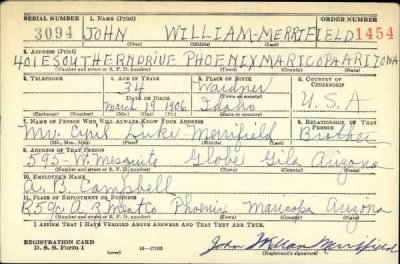 SERIAL NUMBER 1. NAME (Print) ORDER NUMBER
3094 JOHN WILLIAM MERRIFIELD 1454
(First) (Middle) (Last)
2. ADDRESS (Print)
401 E SOUTHERN DRIVE PHOENIX MARICOPA ARIZONA
(Number and street or R. F. D. number) (Town) (County) (State)
3. TELEPHONE 4. AGE IN YEARS 5. PLACE OF BIRTH 6. COUNTRY OF CITIZENSHIP
34 Wardner
DATE OF BIRTH
March 19 1906 Idaho U.S.A
(Exchange) (No.) (Mo.) (Day) (Yr.) (State or country)
7. NAME OF PERSON WHO WILL ALWAYS KNOW YOUR ADDRESS 8. RELATIONSHIP OF THAT PERSON
Mr. Cyril Luke Merrifield Brother
(Mr., Mrs., Miss) (First) (Middle) (Last)
9. ADDRESS OF THAT PERSON
595-W. Mesquite Globe Gila Arizona
(Number and street or R. F. D. number) (Town) (County) (State)
10. EMPLOYER'S NAME
A. B. Campbell
11. PLACE OF EMPLOYMENT OR BUSINESS
Phoenix Maricopa Arizona
(Number and street or R. F. D. number) (Town) (County) (State)
I AFFIRM THAT I HAVE VERIFIED ABOVE ANSWERS AND THAT THEY ARE TRUE.
REGISTRATION CARD
D. S. S. Form 1 (over) John William Merrifield
(Registrant's signature)